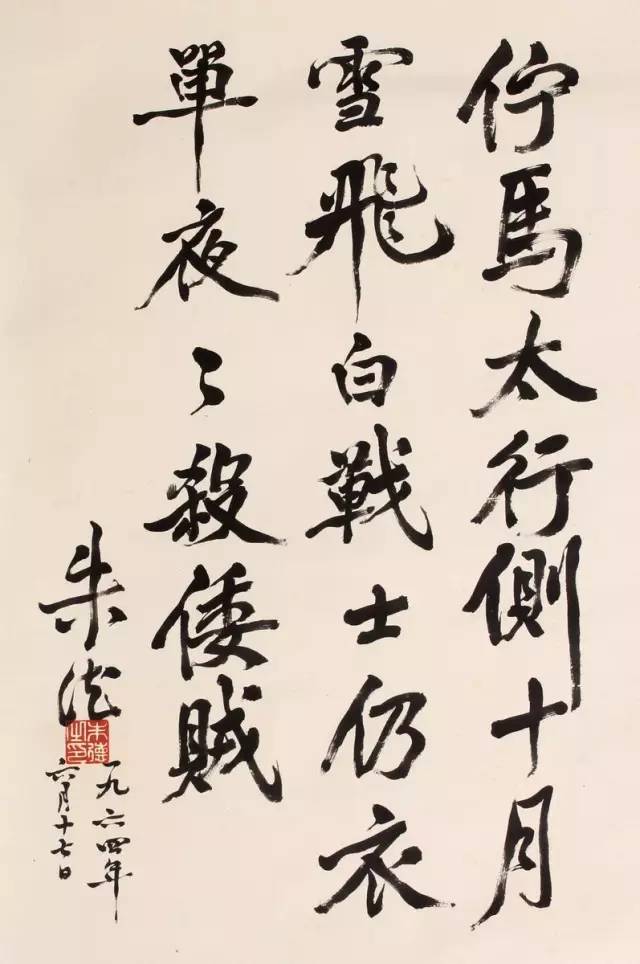 佇馬太行側十月
雪飛白戰士仍衣
單夜々殺倭賊
朱德
朱德之印
一九六四年
六月十七日